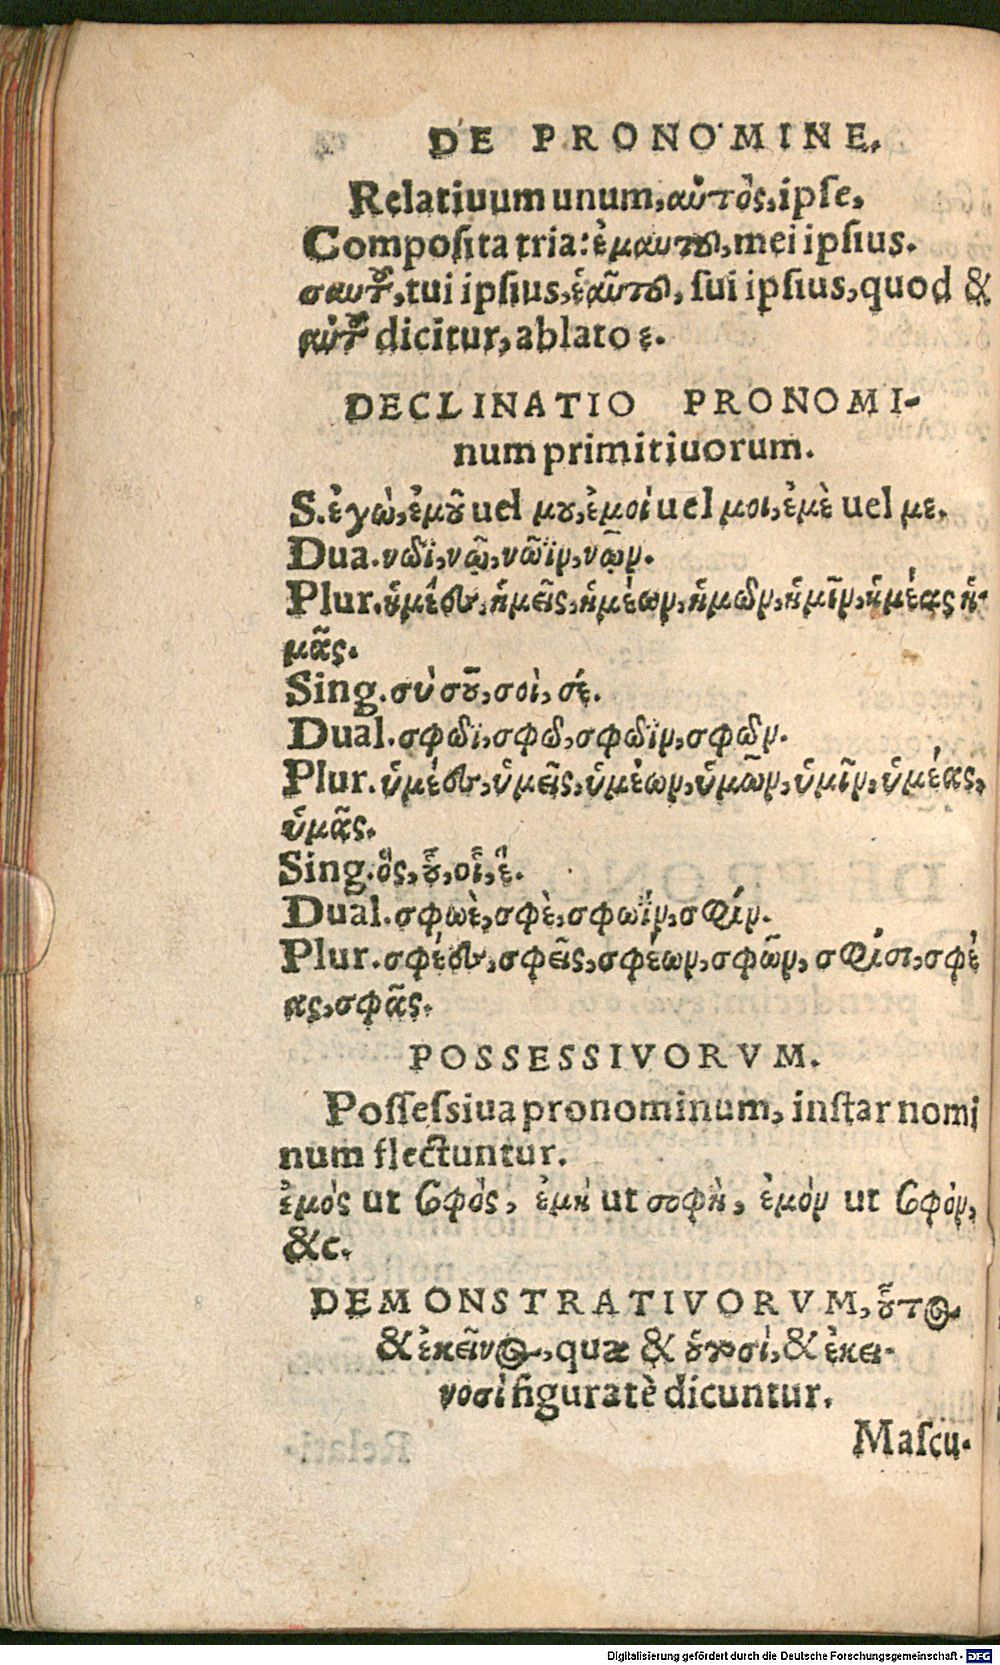 DE PRONOMINE.
Relatiuum unum, αὐτὸς, ipſe,
Compoſita tria: ἐμαυτοῦ, mei ipſius.
σαυτοῦ, tui ipſius, ἑαῦτοῦ, ſui ipſius, quod &
αὑτοῦ dicitur, ablato ε.
DECLINATIO PRONOMI-
num primitiuorum.
S. ἐγὼ, ἐμοῦ uel μου, ἐμοί uel μοι, ἐμὲ uel με.
Dua. νωϊ, νῶ, νῶϊν, νῷν.
Plur. ἡμέες, ἡμεῖς, ἡμέων, ἡμων, ἡμῖν, ἡμέας ἡ-
μᾶς.
Sing. σὺ σοῦ, σοὶ, σέ.
Dual. σφωϊ, σφω, σφωϊν, σφων.
Plur. ὑμέες, ὑμεῖς, ὑμέων, ὑμῶν, ὑμῖν, ὑμέας,
ὑμᾶς.
Sing. ὅς, οὗ, οἷ, ἕ.
Dual. σφωὲ, σφὲ, σφωΐν, σφίν.
Plur. σφέες, σφεῖς, σφέων, σφῶν, σφίσι, σφέ
ας, σφᾶς.
POSSESSIVORVM.
Poſſeſsiua pronominum, inſtar nomi
num flectuntur.
ἐμὸς ut σοφὸς, ἐμὴ ut σοφὴ, ἐμὸν ut σοφὸν,
&c.
DEMONSTRATIVORVM, οὗτος
& ἐκεῖνος, quæ & οὑτοσί, & ἐκει-
νοσὶ figuratè dicuntur.
Maſcu-
Digitalisierung gefördert durch die Deutsche Forschungsgemeinschaft - DFG